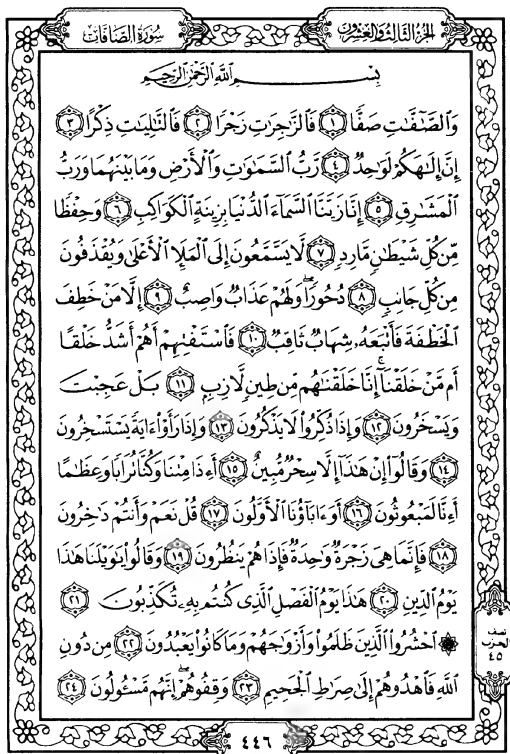 سُورَةُ الصَّافَّاتِ
الجُزْءُ الثَّالِثُ وَالعِشْرُونَ
بِسْمِ اللَّهِ الرَّحْمَٰنِ الرَّحِيمِ
وَالصَّٰٓفَّٰتِ صَفًّا ١ فَالزَّٰجِرَٰتِ زَجْرًا ٢ فَالتَّٰلِيَٰتِ ذِكْرًا ٣
إِنَّ إِلَٰهَكُمْ لَوَٰحِدٌ ٤ رَّبُّ السَّمَٰوَٰتِ وَالْأَرْضِ وَمَا بَيْنَهُمَا وَرَبُّ
الْمَشَٰرِقِ ٥ إِنَّا زَيَّنَّا السَّمَآءَ الدُّنْيَا بِزِينَةٍ الْكَوَاكِبِ ٦ وَحِفْظًا
مِّن كُلِّ شَيْطَٰنٍ مَّارِدٍ ٧ لَّا يَسَّمَّعُونَ إِلَى الْمَلَإِ الْأَعْلَىٰ وَيُقْذَفُونَ
مِن كُلِّ جَانِبٍ ٨ دُحُورًا ۖ وَلَهُمْ عَذَابٌ وَاصِبٌ ٩ إِلَّا مَنْ خَطِفَ
الْخَطْفَةَ فَأَتْبَعَهُۥ شِهَابٌ ثَاقِبٌ ١٠ فَاسْتَفْتِهِمْ أَهُمْ أَشَدُّ خَلْقًا
أَم مَّنْ خَلَقْنَآ ۚ إِنَّا خَلَقْنَٰهُم مِّن طِينٍ لَّازِبٍ ١١ بَلْ عَجِبْتَ
وَيَسْخَرُونَ ١٢ وَإِذَا ذُكِّرُوا لَا يَذْكُرُونَ ١٣ وَإِذَا رَأَوْا ءَايَةً يَسْتَسْخِرُونَ
١٤ وَقَالُوٓا إِنْ هَٰذَآ إِلَّا سِحْرٌ مُّبِينٌ ١٥ أَءِذَا مِتْنَا وَكُنَّا تُرَابًا وَعِظَٰمًا
أَءِنَّا لَمَبْعُوثُونَ ١٦ أَوَءَابَآؤُنَا الْأَوَّلُونَ ١٧ قُلْ نَعَمْ وَأَنتُمْ دَٰخِرُونَ
١٨ فَإِنَّمَا هِىَ زَجْرَةٌ وَٰحِدَةٌ فَإِذَا هُمْ يَنظُرُونَ ١٩ وَقَالُوا يَٰوَيْلَنَا هَٰذَا
يَوْمُ الدِّينِ ٢٠ هَٰذَا يَوْمُ الْفَصْلِ الَّذِى كُنتُم بِهِۦ تُكَذِّبُونَ ٢١
۞ احْشُرُوا الَّذِينَ ظَلَمُوا وَأَزْوَٰجَهُمْ وَمَا كَانُوا يَعْبُدُونَ ٢٢ مِن دُونِ
اللَّهِ فَاهْدُوهُمْ إِلَىٰ صِرَٰطِ الْجَحِيمِ ٢٣ وَقِفُوهُمْ ۖ إِنَّهُم مَّسْـُٔولُونَ ٢٤
نصف
الحزب
٤٥
٤٤٦